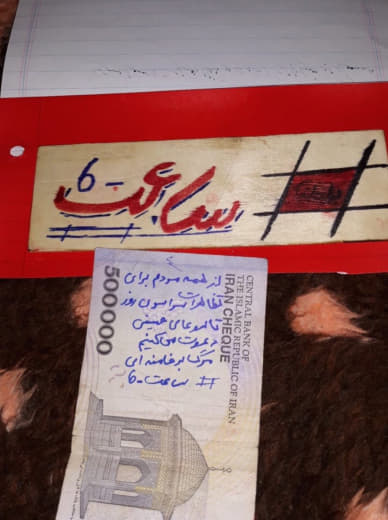 # ساعت -6
از همه مردم برای
تظاهرات سراسری روز
تاسوعای حسینی
دعوت می کنیم
مرگ بر خامنه ای
# ساعت -6
CENTRAL BANK OF
THE ISLAMIC REPUBLIC OF IRAN
IRAN CHEQUE
500000